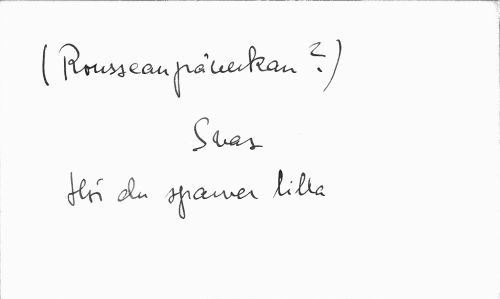 (Rousseaupåverkan?)
Svar
Hör du sparver lilla